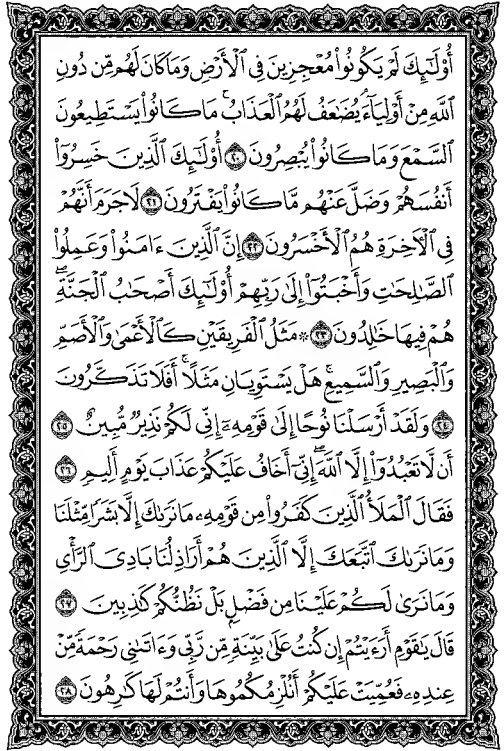 أُوْلَٰٓئِكَ لَمْ يَكُونُواْ مُعْجِزِينَ فِي ٱلْأَرْضِ وَمَا كَانَ لَهُم مِّن دُونِ
ٱللَّهِ مِنْ أَوْلِيَآءَۘ يُضَٰعَفُ لَهُمُ ٱلْعَذَابُۚ مَا كَانُواْ يَسْتَطِيعُونَ
ٱلسَّمْعَ وَمَا كَانُواْ يُبْصِرُونَ ٢٠ أُوْلَٰٓئِكَ ٱلَّذِينَ خَسِرُوٓاْ
أَنفُسَهُمْ وَضَلَّ عَنْهُم مَّا كَانُواْ يَفْتَرُونَ ٢١ لَا جَرَمَ أَنَّهُمْ
فِي ٱلْأٓخِرَةِ هُمُ ٱلْأَخْسَرُونَ ٢٢ إِنَّ ٱلَّذِينَ ءَامَنُواْ وَعَمِلُواْ
ٱلصَّٰلِحَٰتِ وَأَخْبَتُوٓاْ إِلَىٰ رَبِّهِمْ أُوْلَٰٓئِكَ أَصْحَٰبُ ٱلْجَنَّةِۖ
هُمْ فِيهَا خَٰلِدُونَ ٢٣ ۞ مَثَلُ ٱلْفَرِيقَيْنِ كَٱلْأَعْمَىٰ وَٱلْأَصَمِّ
وَٱلْبَصِيرِ وَٱلسَّمِيعِۚ هَلْ يَسْتَوِيَانِ مَثَلًاۚ أَفَلَا تَذَكَّرُونَ
٢٤ وَلَقَدْ أَرْسَلْنَا نُوحًا إِلَىٰ قَوْمِهِۦٓ إِنِّي لَكُمْ نَذِيرٌ مُّبِينٌ ٢٥
أَن لَّا تَعْبُدُوٓاْ إِلَّا ٱللَّهَۖ إِنِّيٓ أَخَافُ عَلَيْكُمْ عَذَابَ يَوْمٍ أَلِيمٍ ٢٦
فَقَالَ ٱلْمَلَأُ ٱلَّذِينَ كَفَرُواْ مِن قَوْمِهِۦ مَا نَرَىٰكَ إِلَّا بَشَرًا مِّثْلَنَا
وَمَا نَرَىٰكَ ٱتَّبَعَكَ إِلَّا ٱلَّذِينَ هُمْ أَرَاذِلُنَا بَادِيَ ٱلرَّأْيِ
وَمَا نَرَىٰ لَكُمْ عَلَيْنَا مِن فَضْلٍۭ بَلْ نَظُنُّكُمْ كَٰذِبِينَ ٢٧
قَالَ يَٰقَوْمِ أَرَءَيْتُمْ إِن كُنتُ عَلَىٰ بَيِّنَةٍ مِّن رَّبِّي وَءَاتَىٰنِي رَحْمَةً مِّنْ
عِندِهِۦ فَعُمِّيَتْ عَلَيْكُمْ أَنُلْزِمُكُمُوهَا وَأَنتُمْ لَهَا كَٰرِهُونَ ٢٨